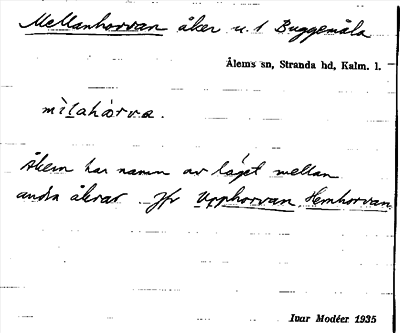 Mellanhorvan åker u. 1 Buggemåla
Ålems sn, Stranda hd, Kalm. l.
mìlahòrva.
Åkern har namn av läget mellan
andra åkrar. Jfr Upphorvan Hemhorvan.
Ivar Modéer 1935